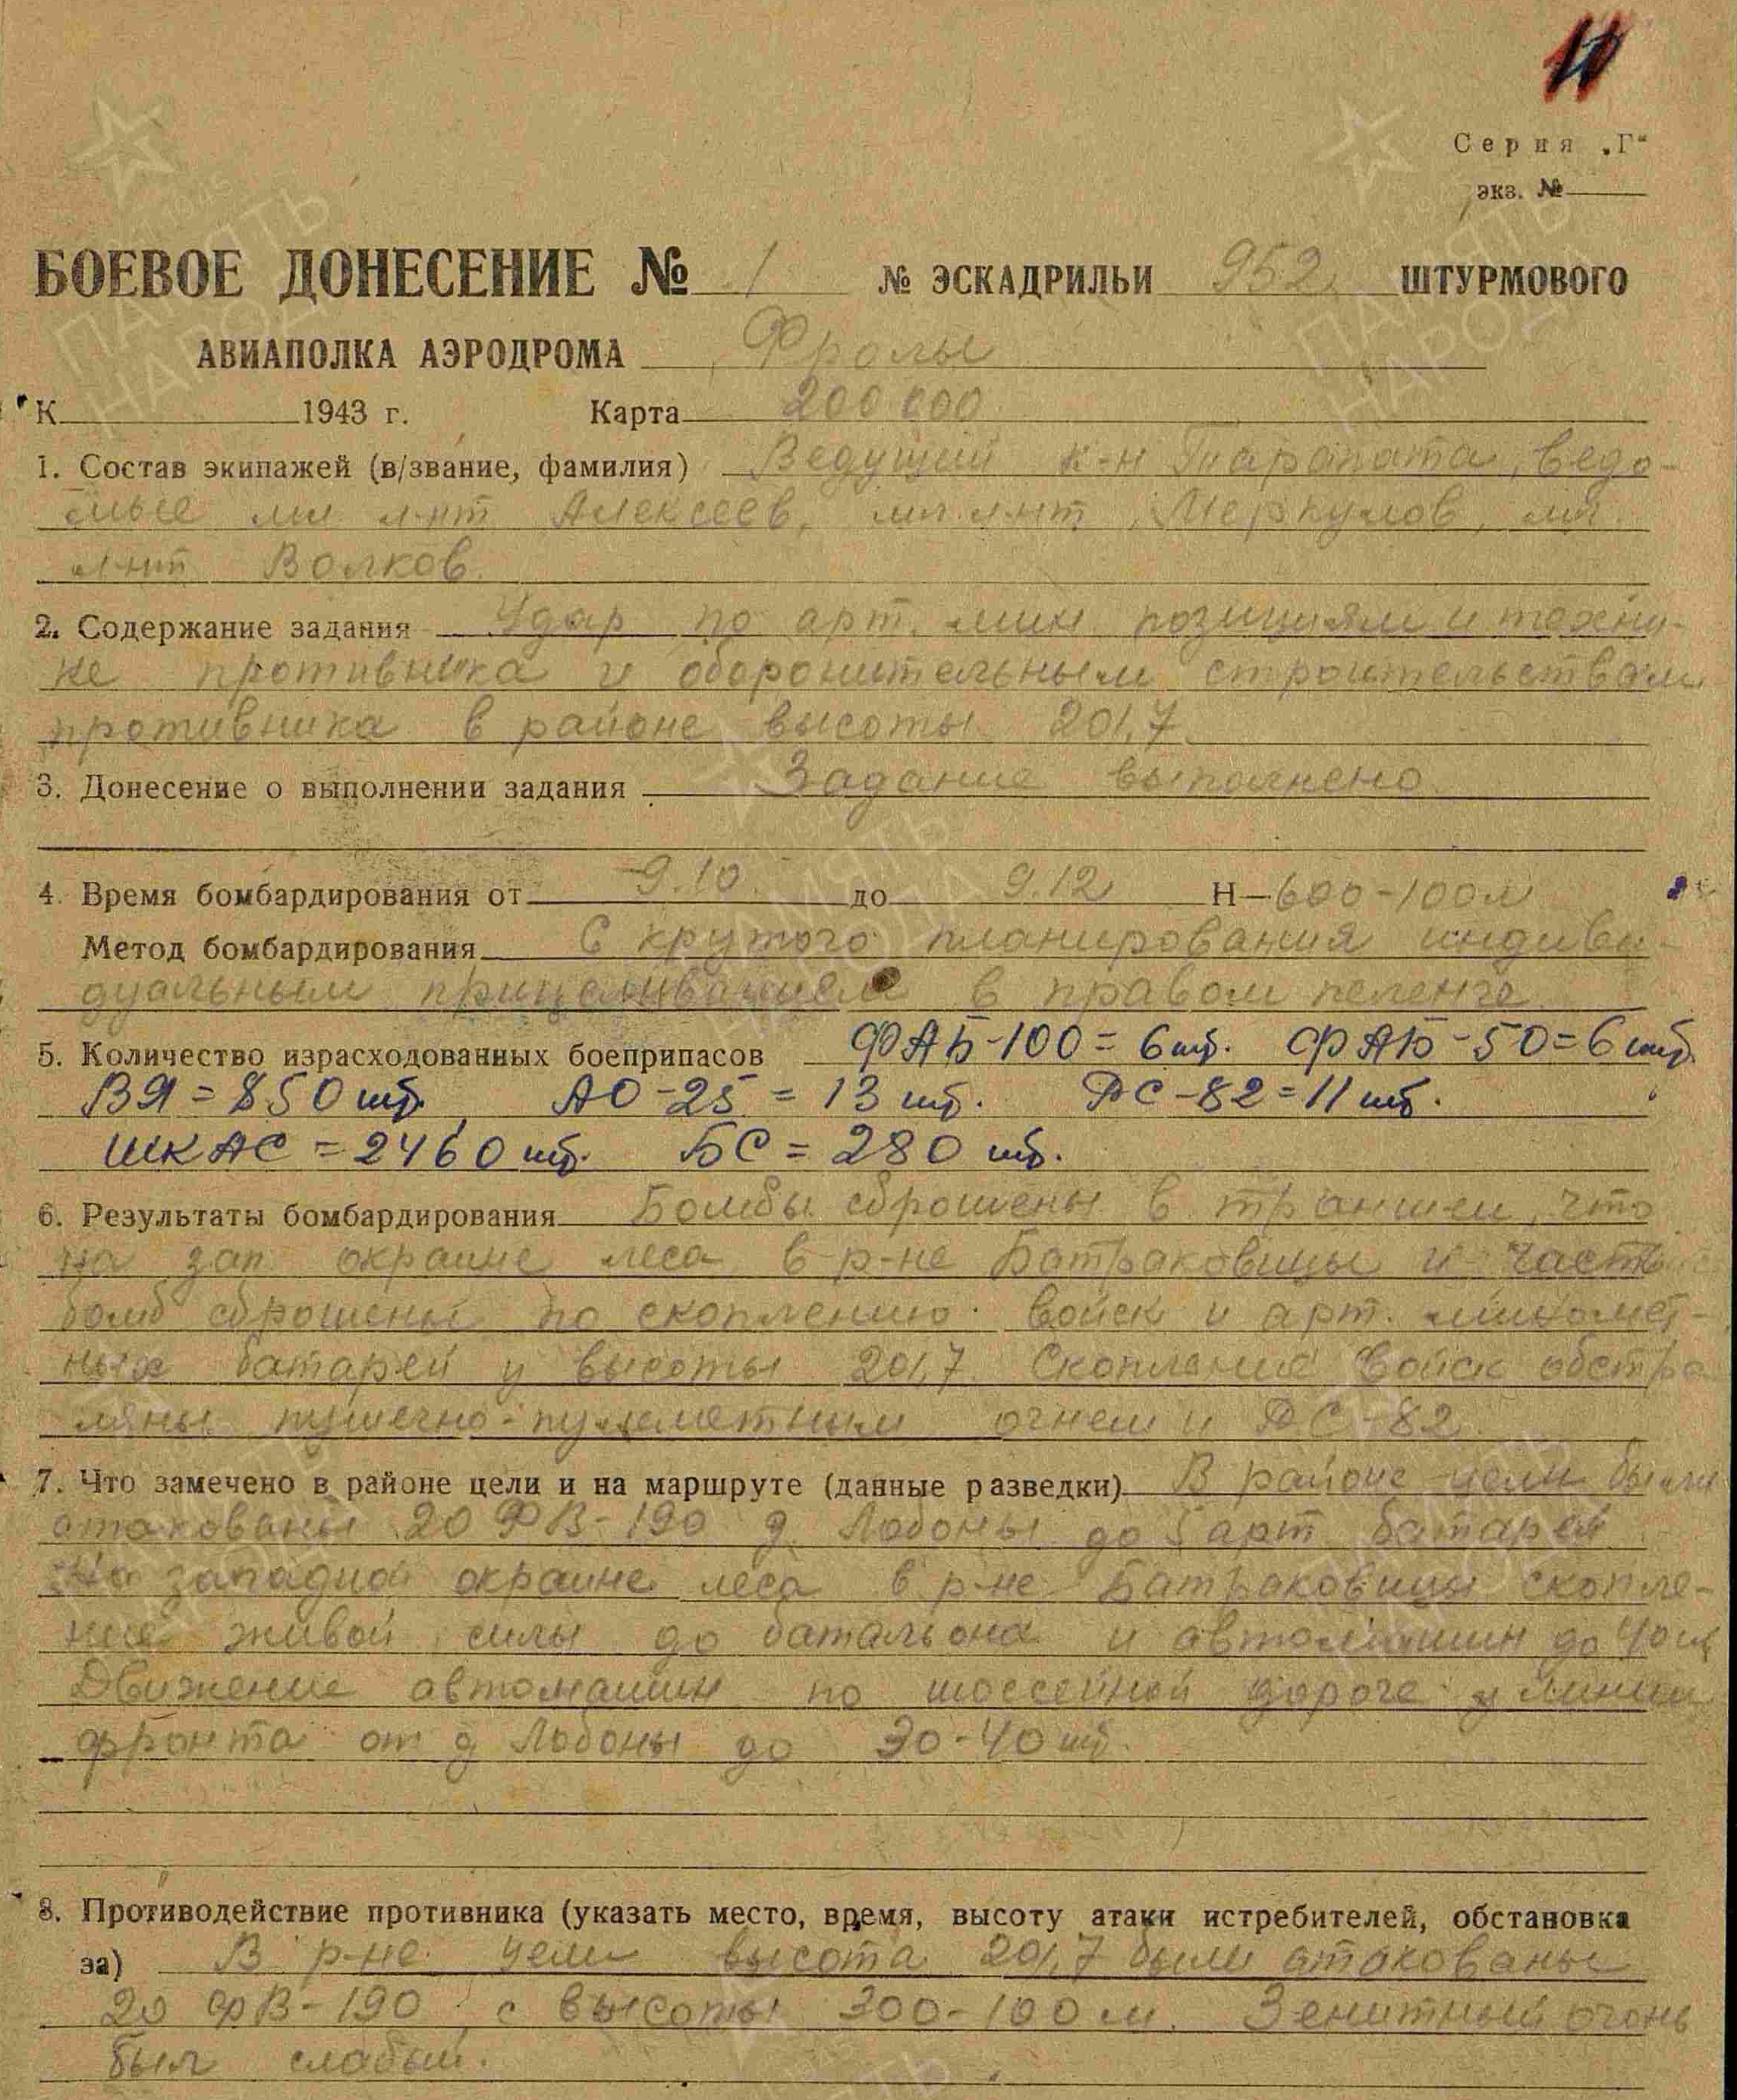 10
Серия „Г“
экз. №
БОЕВОЕ ДОНЕСЕНИЕ № 1 № ЭСКАДРИЛЬИ 952 ШТУРМОВОГО
АВИАПОЛКА АЭРОДРОМА Фролы
К 1943 г. Карта 200 000
1. Состав экипажей (в/звание, фамилия) Ведущий к-н Тарапата, ведо-
мые мл л-нт Алексеев, мл. л-нт Меркулов, мл.
л-нт Волков.
2. Содержание задания Удар по арт. мин. позициям и техни-
ке противника и оборонительным строительствам
противника в районе высоты 201,7.
3. Донесение о выполнении задания Задание выполнено.
4. Время бомбардирования от 9.10 до 9.12 Н—600-100м
Метод бомбардирования С крутого планирования индиви-
дуальным прицеливанием в правом пеленге
5. Количество израсходованных боеприпасов ФАБ-100=6шт. ФАБ-50=6шт.
ВЯ=850шт, АО-25=13 шт. РС-82=11шт.
ШКАС=2460шт. БС=280 шт.
6. Результаты бомбардирования Бомбы сброшены в траншеи, что
на зап. окраине леса в р-не Батраковицы и часть
бомб сброшены по скоплению войск и арт. миномет-
ных батарей у высоты 201,7. Скопление войск обстре
ляны пушечно-пулеметным огнем и РС-82
7. Что замечено в районе цели и на маршруте (данные разведки) В районе цели были
атакованы 20 ФВ-190 д. Лобоны до 5 арт батарей.
На западной окраине леса в р-не Батраковицы скопле-
ние живой силы до батальона и автомашин до 40 шт
Движение автомашин по шоссейной дороге у линии
фронта от д Лобоны до 30-40 шт.
8. Противодействие противника (указать место, время, высоту атаки истребителей, обстановка
за) В р-не цели высота 201,7 были атакованы
20 ФВ-190 с высоты 300-100 м. Зенитный огонь
был слабый.
ПАМЯТЬ
НАРОДА